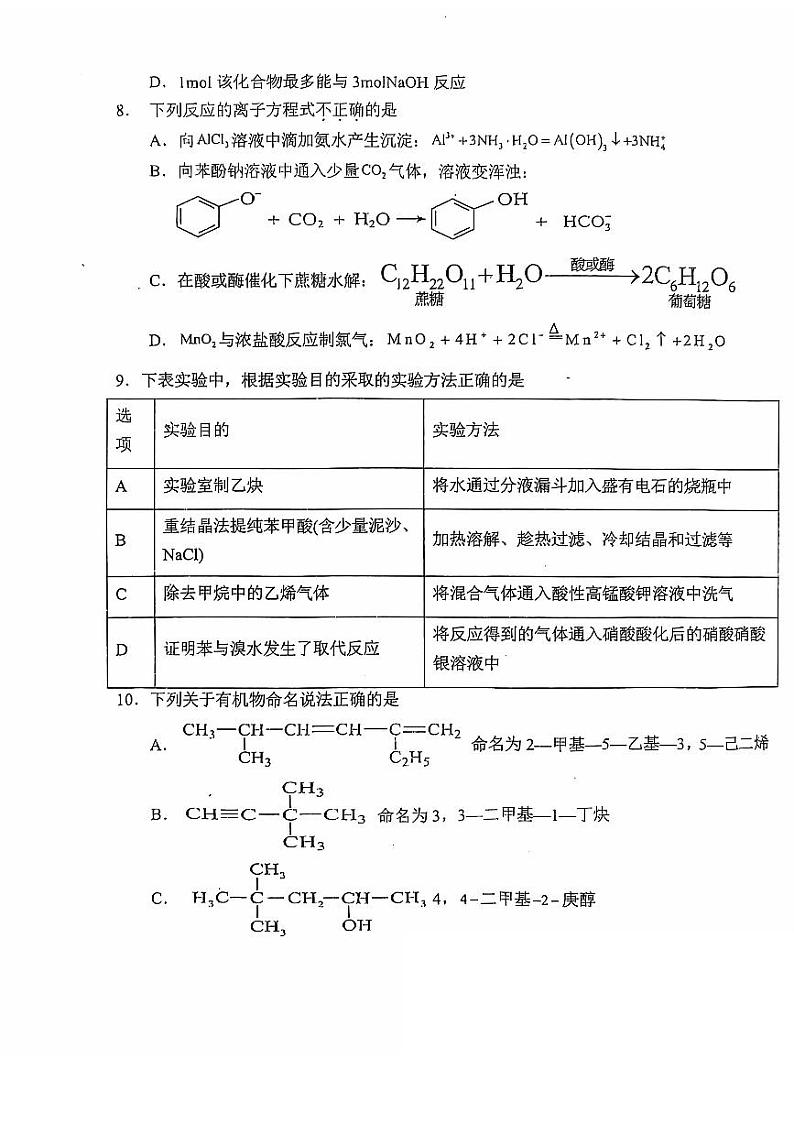 D．1mol 该化合物最多能与 3molNaOH 反应
8． 下列反应的离子方程式不正确的是
A．向 AlCl₃ 溶液中滴加氨水产生沉淀：Al³⁺+3NH₃·H₂O=Al(OH)₃↓+3NH₄⁺
B．向苯酚钠溶液中通入少量CO₂气体，溶液变浑浊：
O⁻ + CO₂ + H₂O → OH + HCO₃⁻
C．在酸或酶催化下蔗糖水解：C₁₂H₂₂O₁₁+H₂O 酸或酶→2C₆H₁₂O₆
蔗糖 葡萄糖
D．MnO₂与浓盐酸反应制氯气：MnO₂+4H⁺+2Cl⁻ △= Mn²⁺+Cl₂↑+2H₂O
9．下表实验中，根据实验目的采取的实验方法正确的是
选项 实验目的 实验方法
A 实验室制乙炔 将水通过分液漏斗加入盛有电石的烧瓶中
B 重结晶法提纯苯甲酸(含少量泥沙、NaCl) 加热溶解、趁热过滤、冷却结晶和过滤等
C 除去甲烷中的乙烯气体 将混合气体通入酸性高锰酸钾溶液中洗气
D 证明苯与溴水发生了取代反应 将反应得到的气体通入硝酸酸化后的硝酸硝酸银溶液中
10．下列关于有机物命名说法正确的是
A． CH₃—CH—CH=CH—C=CH₂ 命名为 2—甲基—5—乙基—3，5—己二烯
CH₃ C₂H₅
CH₃
B． CH≡C—C—CH₃ 命名为 3，3—二甲基—1—丁炔
CH₃
CH₃
C． H₃C—C—CH₂—CH—CH₃ 4，4-二甲基-2-庚醇
CH₃ OH